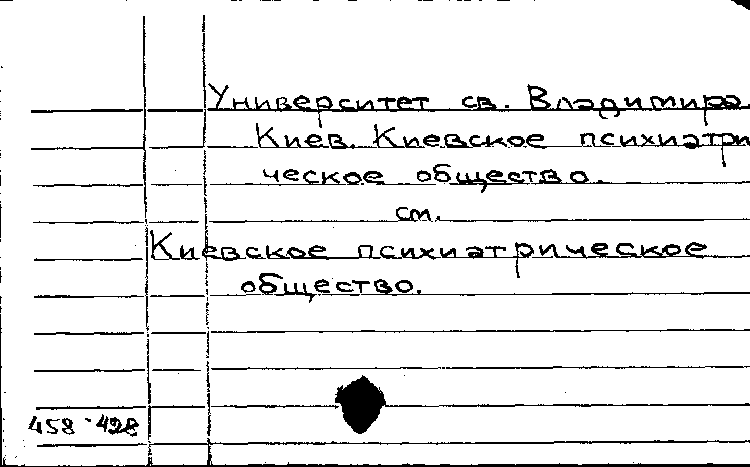 Университет св. Владимира
Киев. Киевское психиатри
ческое общество.
см.
Киевское психиатрическое
общество.
458-428